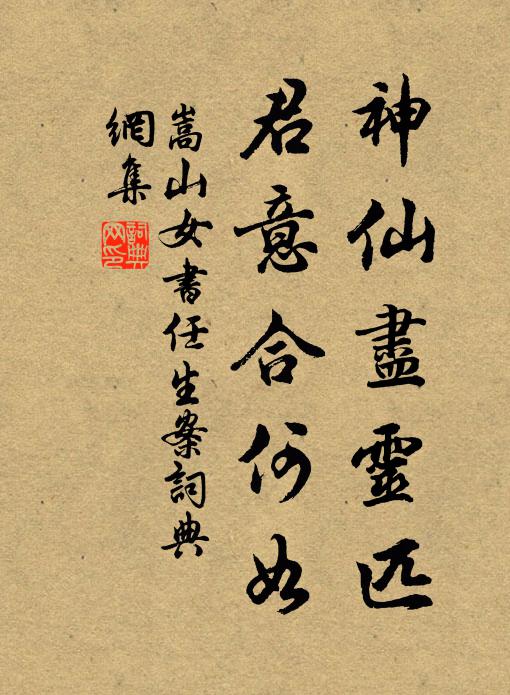 神仙盡靈匹
君意合何如
嵩山女書任生案詞典
網集
詞典
网印